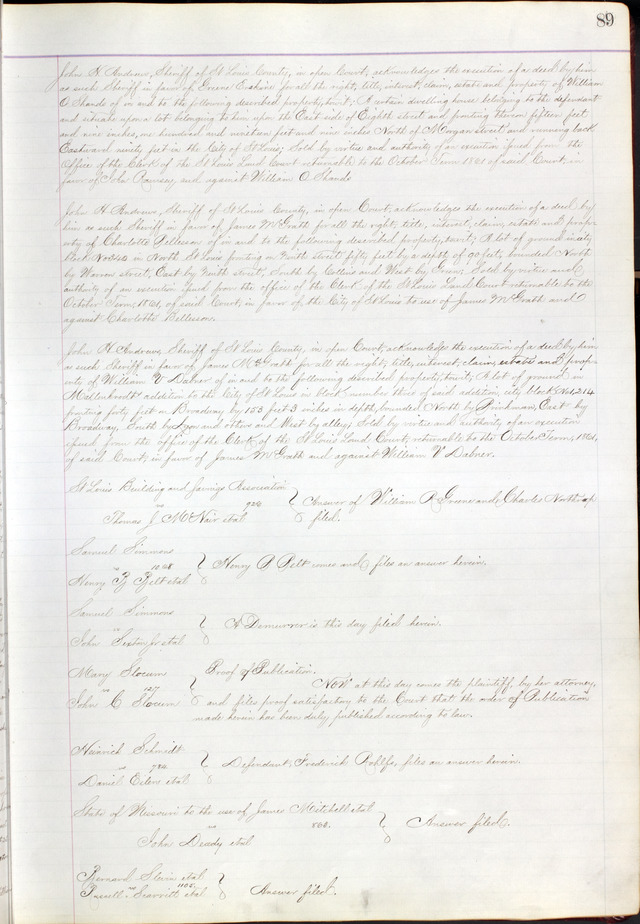 89
John H. Andrews, Sheriff of St Louis County, in open Court, acknowledges the execution of a deed by him
as such Sheriff in favor of Greene Erskine for all the right, title, interest, claim, estate and property of William
O Shands of in and to the following described property, towit; A certain dwelling house belonging to the defendant
and situate upon a lot belonging to him upon the East side of Eighth street and fronting thereon fifteen feet
and nine inches, one hundred and nineteen feet and nine inches North of Morgan street and running back
Eastward ninety feet in the City of St Louis; Sold by virtue and authority of an execution issued from the
Office of the Clerk of the St Louis Land Court returnable to the October Term 1861 of said Court, in
favor of John Ramsey and against William O Shands
John H Andrews, Sheriff of St Louis County, in open Court, acknowledges the execution of a deed by
him as such Sheriff in favor of James McGrath for all the right, title, interest, claim, estate and prop-
erty of Charlotte Pellerson of in and to the following described property, towit; A lot of ground in city
block No in North St Louis fronting on Ninth street fifty feet by a depth of 90 feet, bounded North
by Warren street, East by Ninth street, South by Collins and West by Green; Sold by virtue and
authority of an execution issued from the office of the Clerk of the St Louis Land Court returnable to the
October Term, 1861, of said Court, in favor of the City of St Louis to use of James McGrath and
against Charlotte Pellerson.
John H Andrews, Sheriff of St Louis County, in open Court, acknowledges the execution of a deed by him
as such Sheriff in favor of James McGrath for all the right, title, interest, claim, estate and prop-
erty of William V Dabner of in and to the following described property, towit; A lot of ground
addition to the City of St Louis in block number three of said addition, city block No 1,214
fronting forty feet on Broadway by 153 feet 3 inches in depth, bounded North by East by
Broadway, South by Lyon and others and West by alley; Sold by virtue and authority of an execution
issued from the office of the Clerk of the St Louis Land Court, returnable to the October Term, 1861,
of said Court, in favor of James McGrath and against William V Dabner.
St Louis Building and Savings Association
vs 924 Answer of William R Greene and Charles North
Thomas J. McNair etal filed.
Samuel Simmons
vs 1028 Henry P Pelt comes and files an answer herein.
Henry P Pelt etal
Samuel Simmons
vs A Demurrer is this day filed herein.
John Sexton Jr etal
Mary Slocum Proof of Publication.
vs 127 Now at this day comes the plaintiff by her attorney,
John C Slocum and files proof satisfactory to the Court that the order of Publication
made herein has been duly published according to law.
Heinrich Schmidt
vs 732 Defendant, Frederick Rohlfs, files an answer herein.
Daniel Eilers etal
State of Missouri to the use of James Mitchell etal
vs 860. Answer filed.
John Deady etal
Bernard Slevin etal
vs 1105 Answer filed.
Russell Scarritt etal